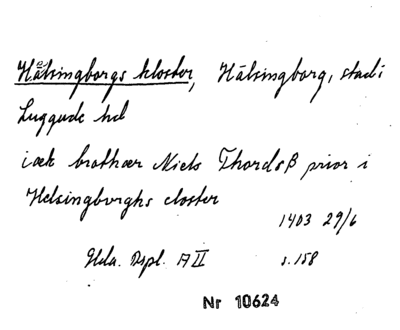 Hälsingborgs kloster, Hälsingborg, stad i
Luggude hd
iæk brothær Niels Thordsß prior i
Helsingburghs closter
1403 29/6
Hda. Dspl. A II s. 158
Nr 10624